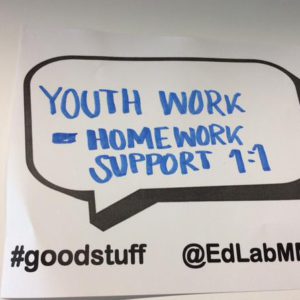 YOUTH WORK
- HOMEWORK
SUPPORT 1:1
#goodstuff @EdLabM